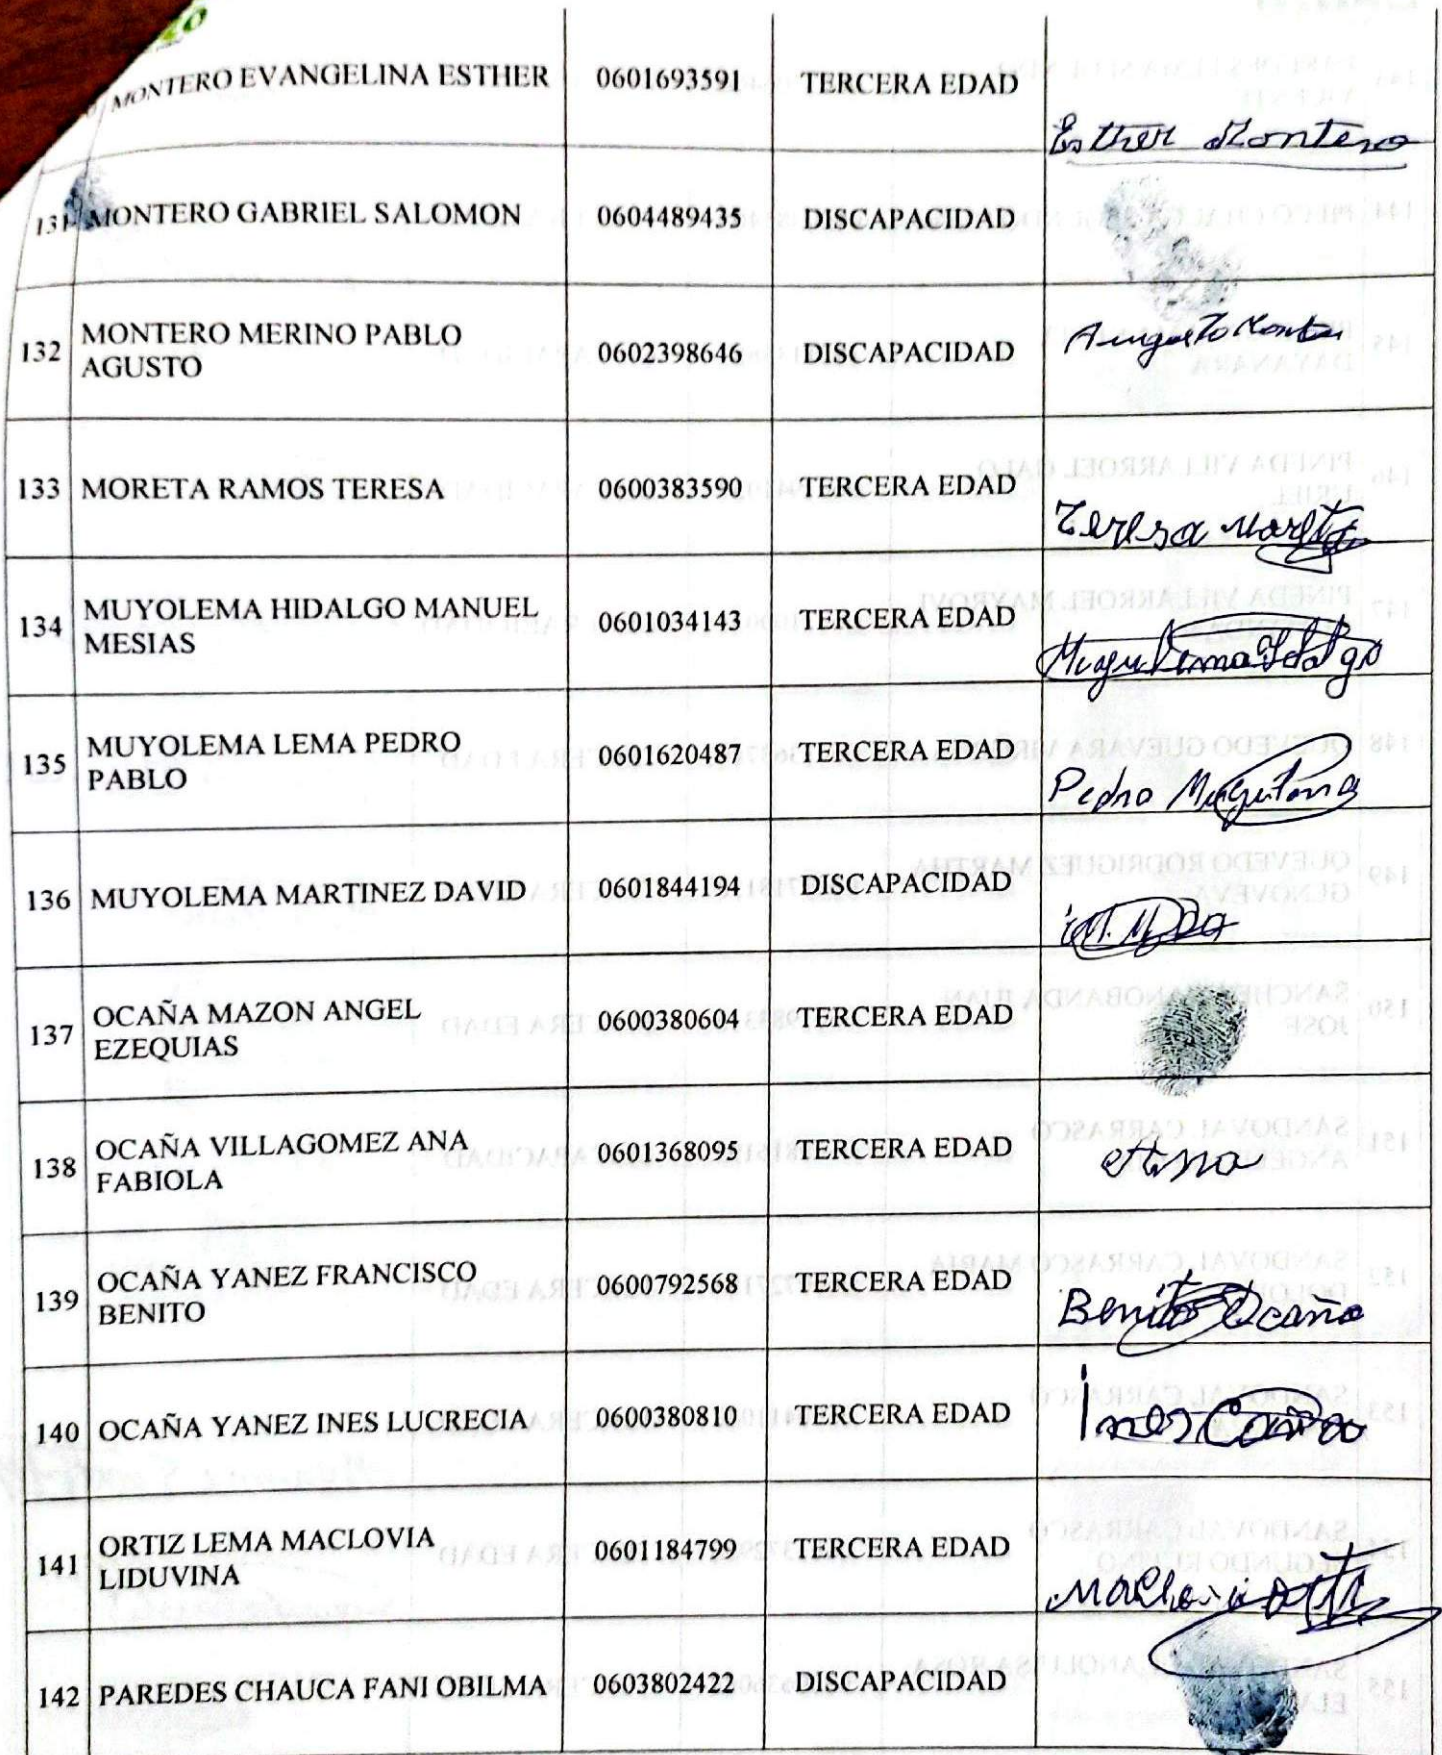 MONTERO EVANGELINA ESTHER 0601693591 TERCERA EDAD
Esther Montero
131 MONTERO GABRIEL SALOMON 0604489435 DISCAPACIDAD
132 MONTERO MERINO PABLO AGUSTO 0602398646 DISCAPACIDAD
133 MORETA RAMOS TERESA 0600383590 TERCERA EDAD
Teresa Moreta
134 MUYOLEMA HIDALGO MANUEL MESIAS 0601034143 TERCERA EDAD
135 MUYOLEMA LEMA PEDRO PABLO 0601620487 TERCERA EDAD
Pedro
136 MUYOLEMA MARTINEZ DAVID 0601844194 DISCAPACIDAD
137 OCAÑA MAZON ANGEL EZEQUIAS 0600380604 TERCERA EDAD
138 OCAÑA VILLAGOMEZ ANA FABIOLA 0601368095 TERCERA EDAD
Ana
139 OCAÑA YANEZ FRANCISCO BENITO 0600792568 TERCERA EDAD
Benito Ocaña
140 OCAÑA YANEZ INES LUCRECIA 0600380810 TERCERA EDAD
Ines
141 ORTIZ LEMA MACLOVIA LIDUVINA 0601184799 TERCERA EDAD
142 PAREDES CHAUCA FANI OBILMA 0603802422 DISCAPACIDAD